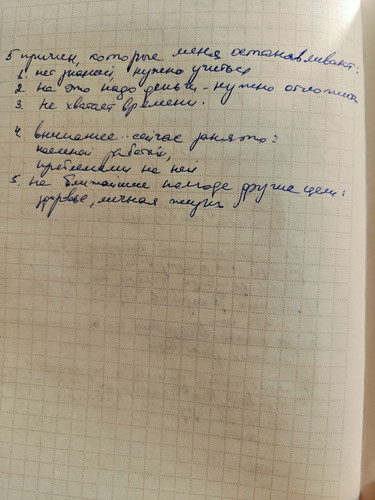 5 причин, которые меня останавливают:
1. нет знаний, нужно учиться
2. на это надо деньги - нужно отложить
3. не хватает времени.
4. внимание сейчас занято:
наемной работой,
проблемами на ней
5. на ближайшие полгода другие цели:
здоровье, личная жизнь